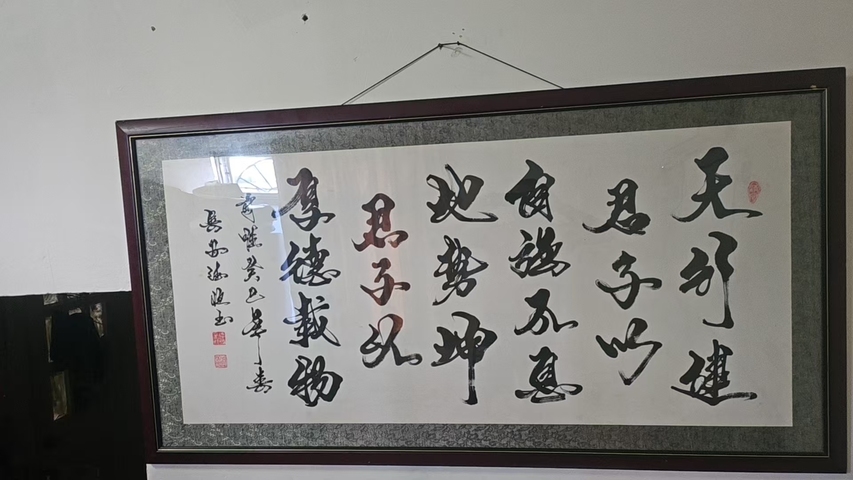 天行健
君子以
自强不息
地势坤
君子以
厚德载物
癸巳
书